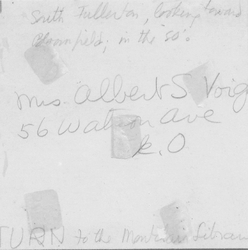 South Fullerton, looking toward
Bloomfield, in the 50's
Mrs. Albert S Voig
56 Watson Ave
E.O.
TURN to the Montclair Librar